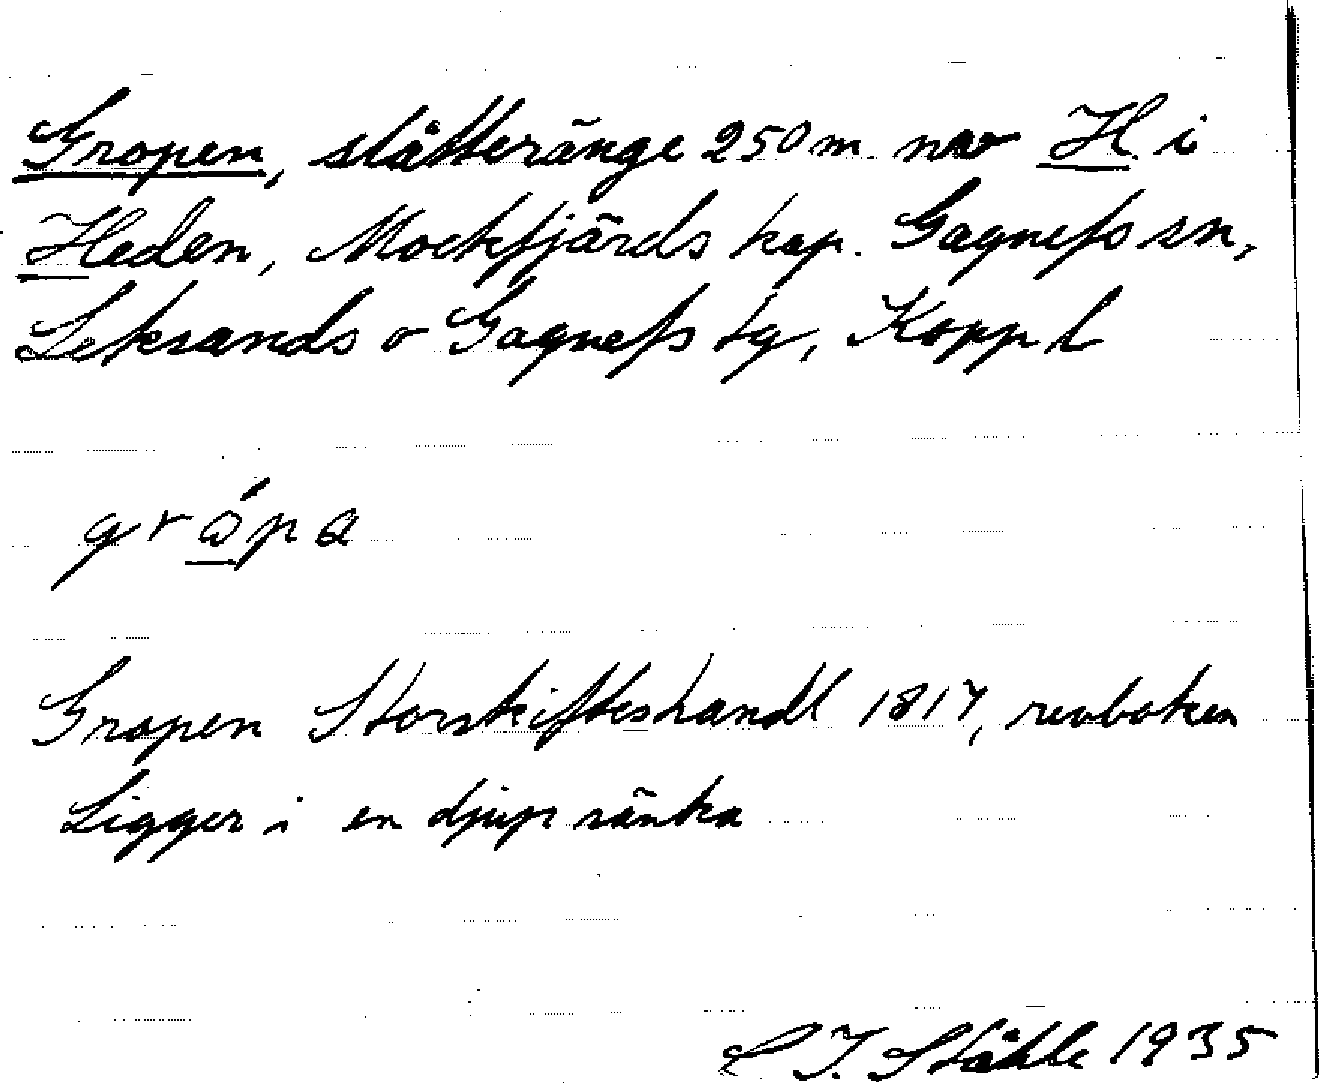 Gropen, slåtteränge 250 m nv H i
Heden, Mockfjärds kap. Gagnefs sn,
Leksands o Gagnefs tg, Kopp l
gròpa
Gropen Storskifteshandl 1817, revboken
Ligger i en djup sänka
C I. Ståhle 1935